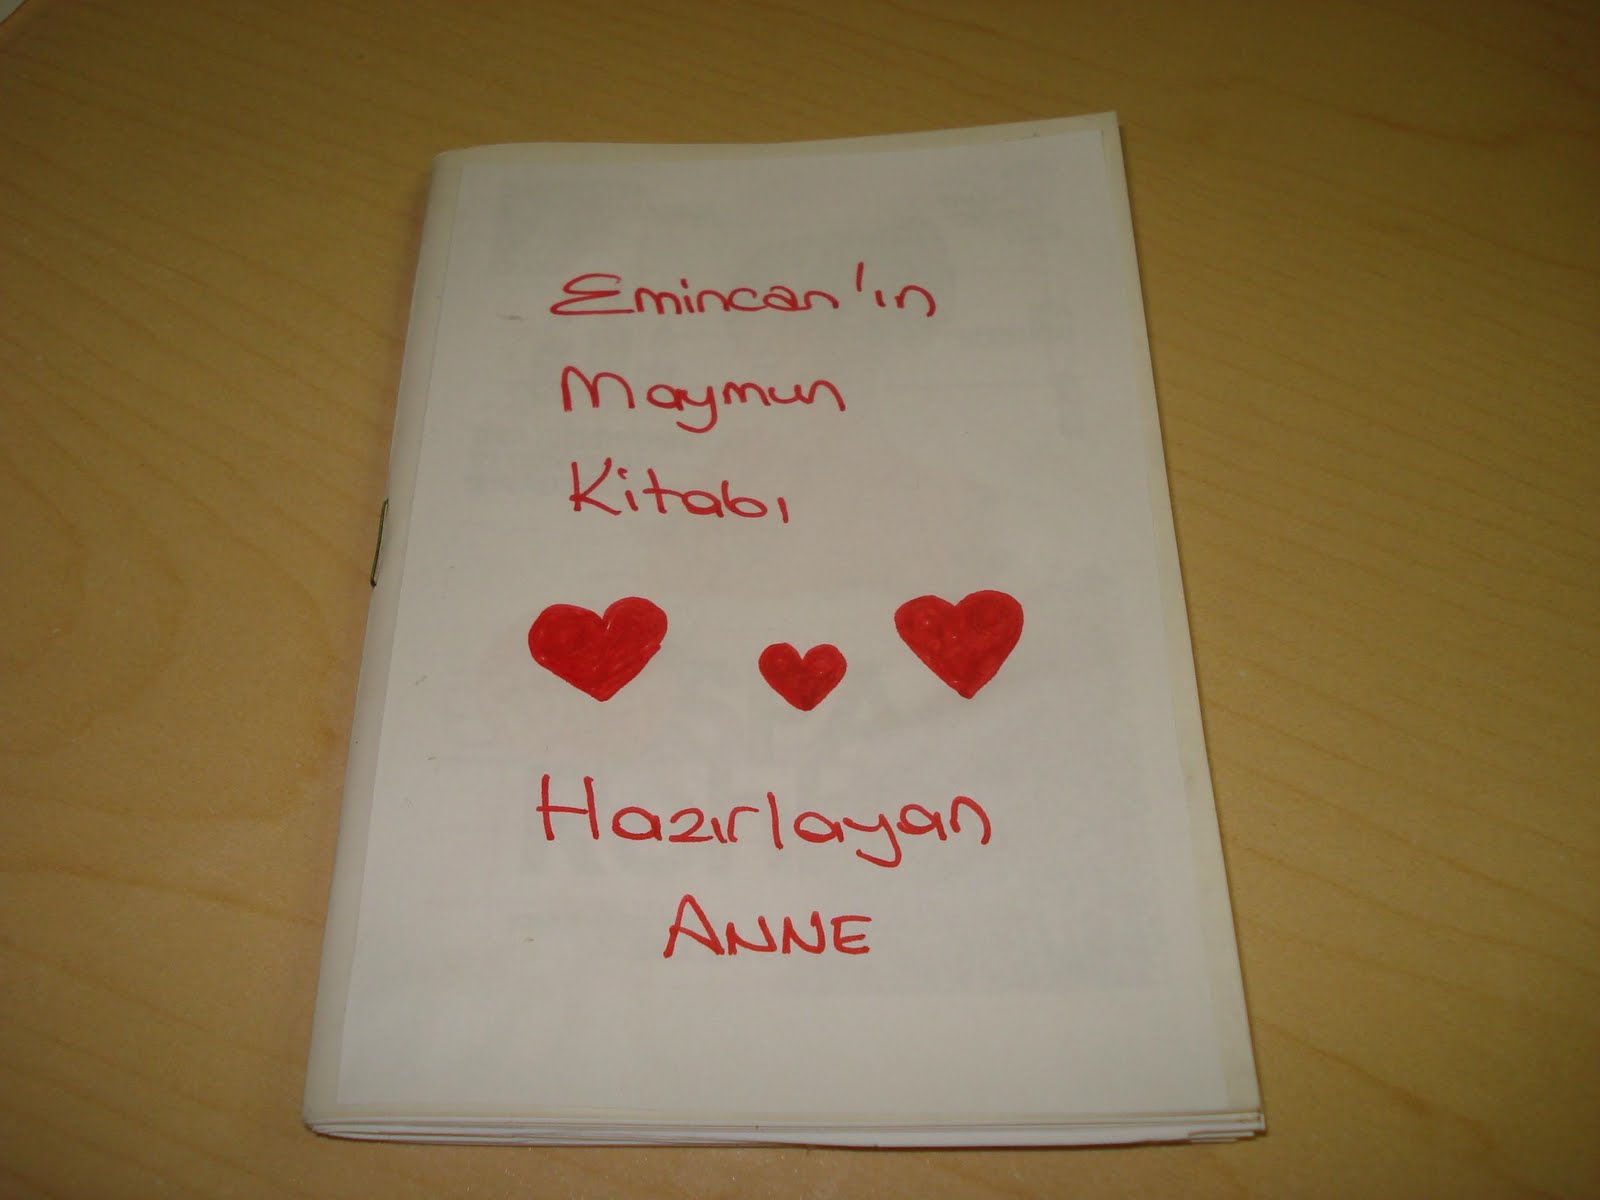 Emincan'ın
Maymun
Kitabı
Hazırlayan
ANNE